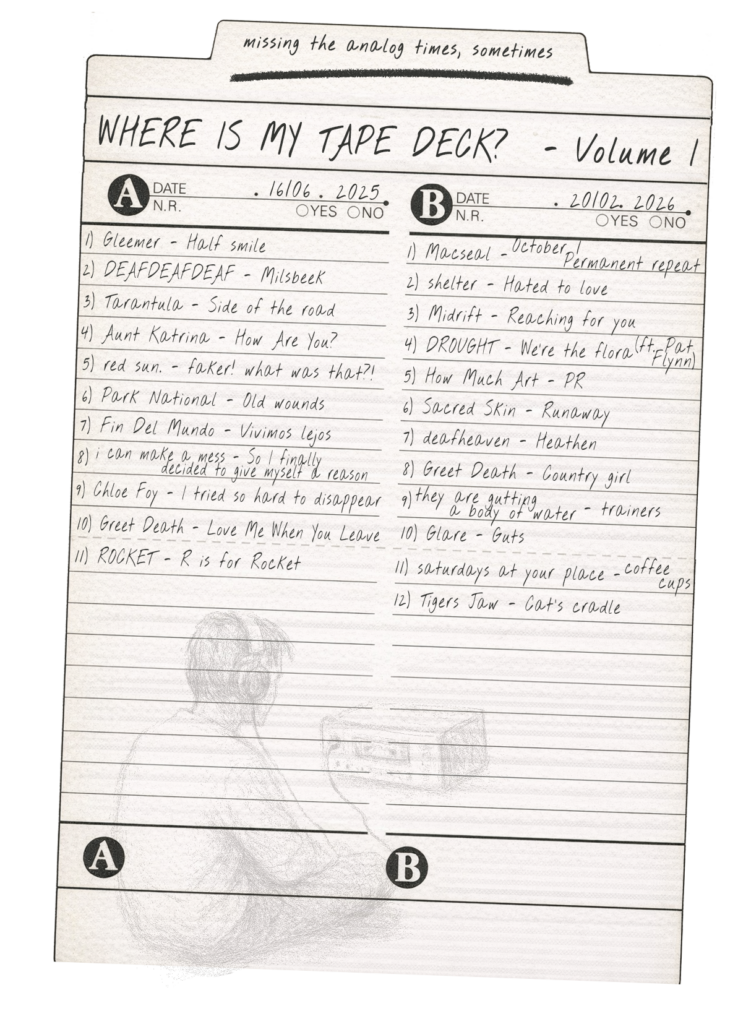 missing the analog times, sometimes
WHERE IS MY TAPE DECK? - Volume 1
A DATE . 16/06 . 2025.
N.R. YES NO
1) Gleemer - Half smile
2) DEAFDEAFDEAF - Milsbeek
3) Tarantula - Side of the road
4) Aunt Katrina - How Are You?
5) red sun. - faker! what was that?!
6) Park National - Old wounds
7) Fin Del Mundo - Vivimos lejos
8) i can make a mess - So I finally
decided to give myself a reason
9) Chloe Foy - I tried so hard to disappear
10) Greet Death - Love Me When You Leave
11) ROCKET - R is for Rocket
B DATE . 20/02. 2026.
N.R. YES NO
1) Macseal - October /
Permanent repeat
2) shelter - Hated to love
3) Midrift - Reaching for you
4) DROUGHT - We're the flora (ft. Pat
Flynn)
5) How Much Art - PR
6) Sacred Skin - Runaway
7) deafheaven - Heathen
8) Greet Death - Country girl
9) they are gutting
a body of water - trainers
10) Glare - Guts
11) saturdays at your place - coffee
cups
12) Tigers Jaw - Cat's cradle
A
B